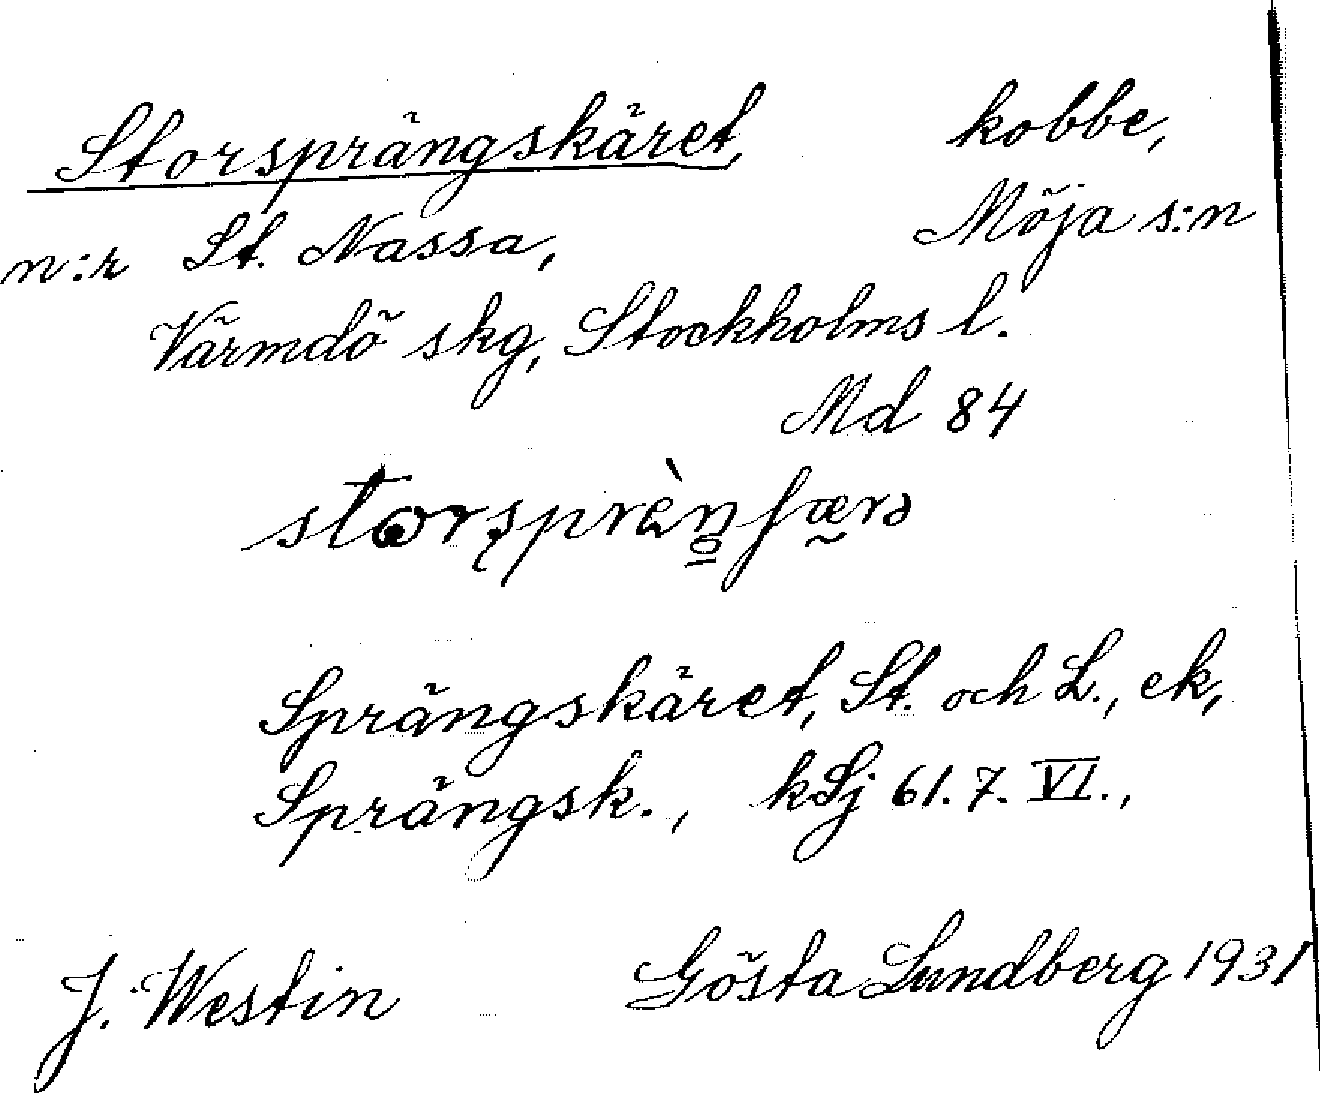 Storsprängskäret, kobbe,
n:r St. Nassa, Möja s:n
Värmdö skg, Stockholms l.
Md 84
Sprängskäret, St. och L., ek,
Sprängsk., kSj 61.7.VI.,
J. Westin Gösta Lundberg 1931